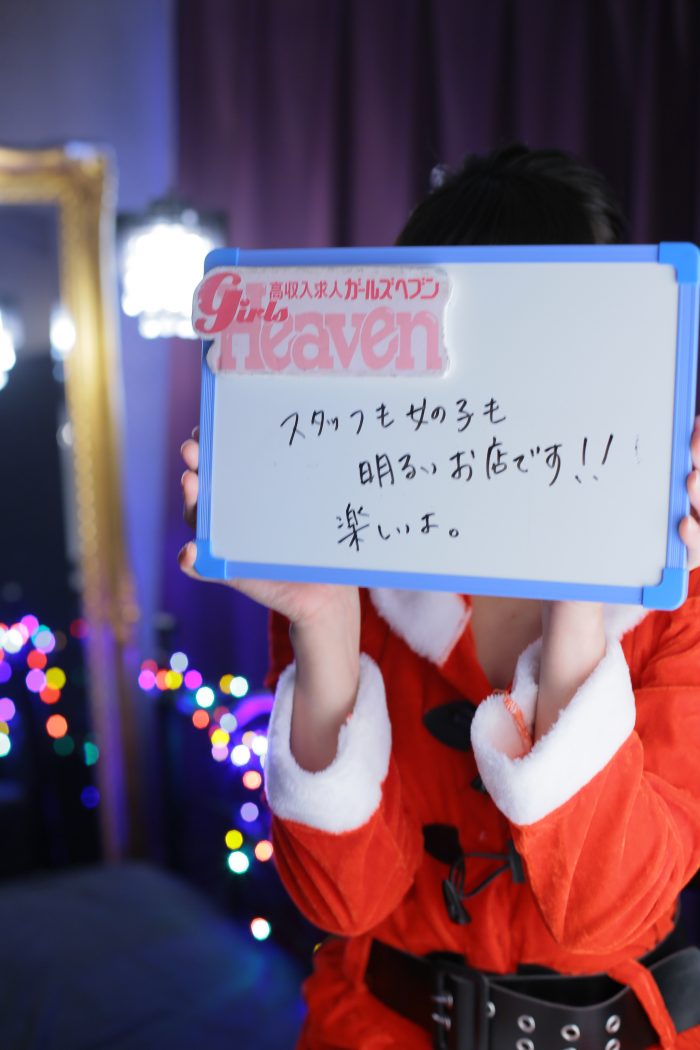 高収入求人ガールズヘブン
Girls
Heaven
スタッフも女の子も
明るいお店です!!
楽しいよ。